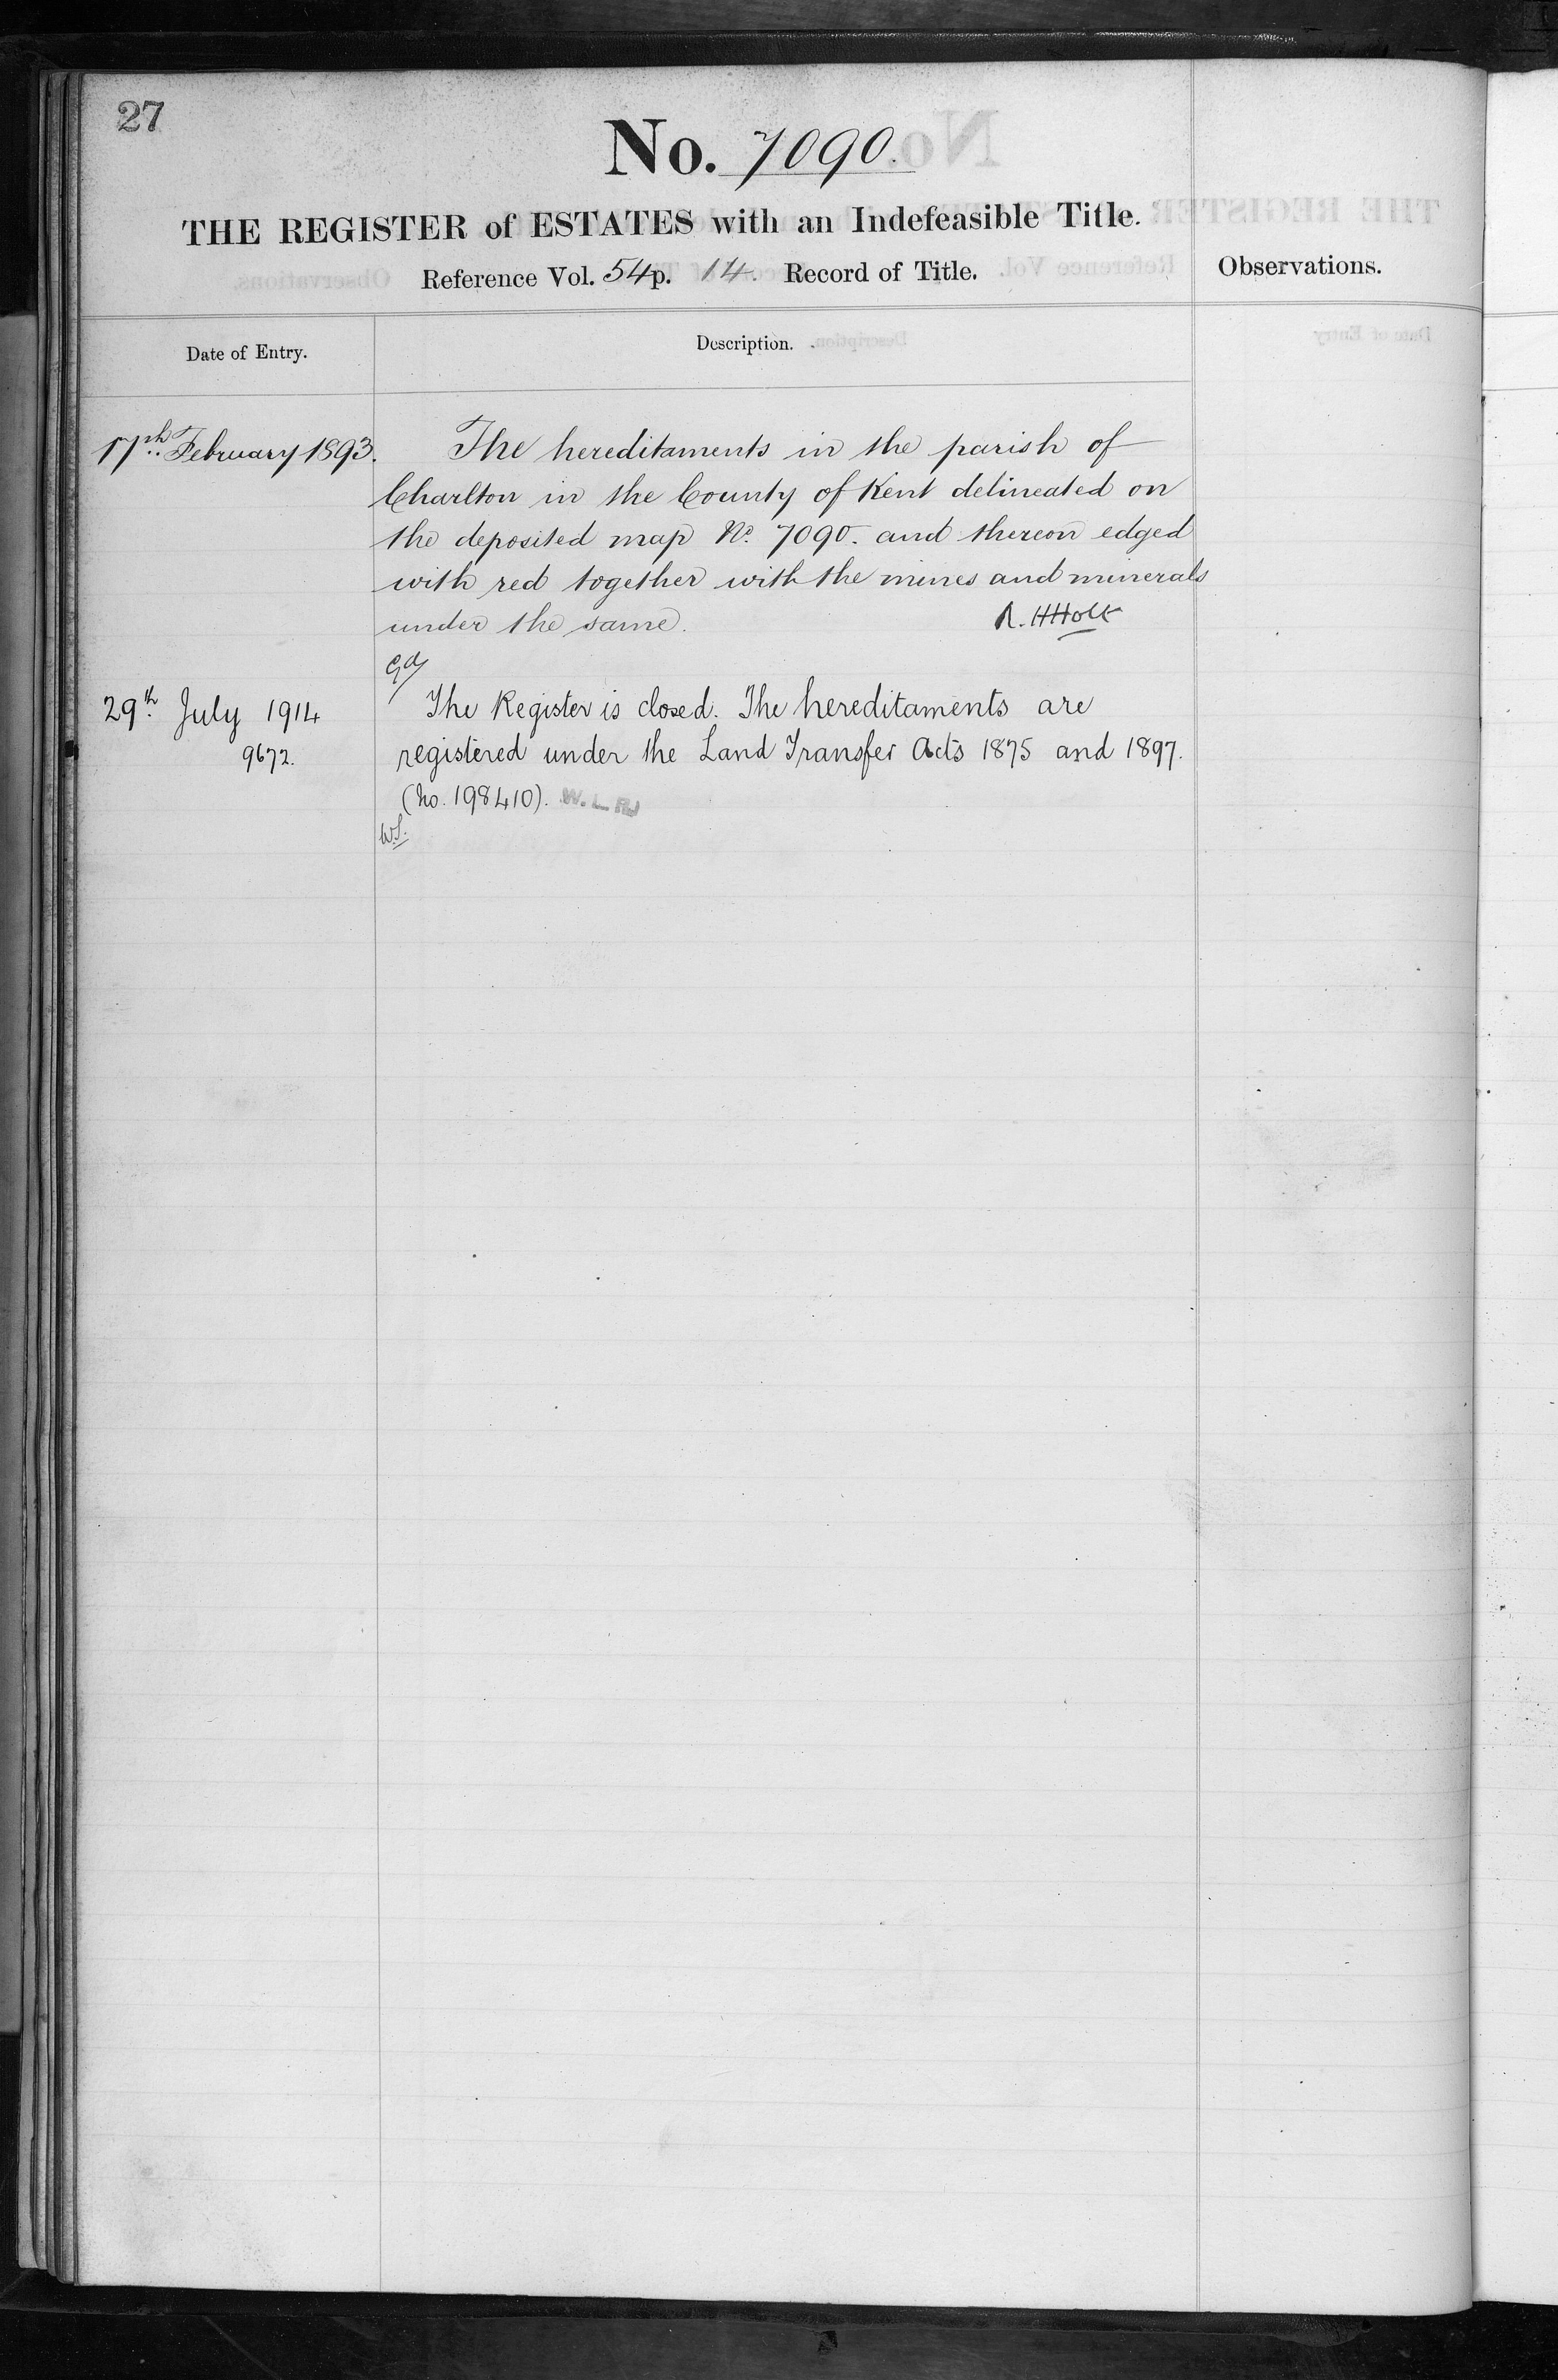 27
No. 7090.
THE REGISTER of ESTATES with an Indefeasible Title.
Reference Vol. 54 p. 14. Record of Title.
Observations.
Date of Entry.
Description.
17th February 1893.
The hereditaments in the parish of
Charlton in the County of Kent delineated on
the deposited map No. 7090. and thereon edged
with red together with the mines and minerals
under the same.
R. H Holt
29th July 1914
9672.
The Register is closed. The hereditaments are
registered under the Land Transfer Acts 1875 and 1897.
(No. 198410).